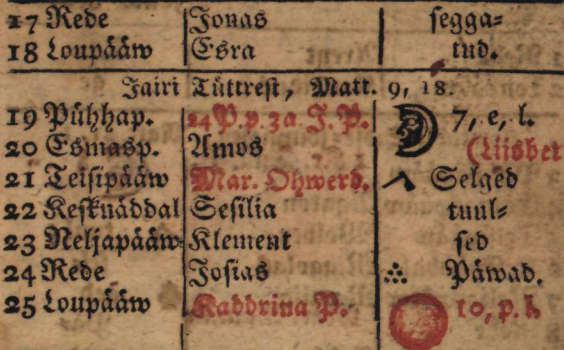 17 Rede Jonas segga=
18 Loupääw Esra tud.
Jairi Tüttrest, Matt. 9, 18.
19 Pühhap. 24 P. p. 3 a J. P. 7, e, l.
20 Esmasp. Amos (Liisbet
21 Teisipääw Mar. Ohwerd. Selged
22 Kesknäddal Sesilia tuul=
23 Neljapääw Klement sed
24 Rede Josias Päwad.
25 Loupääw Kaddrina P. 10, p. l.